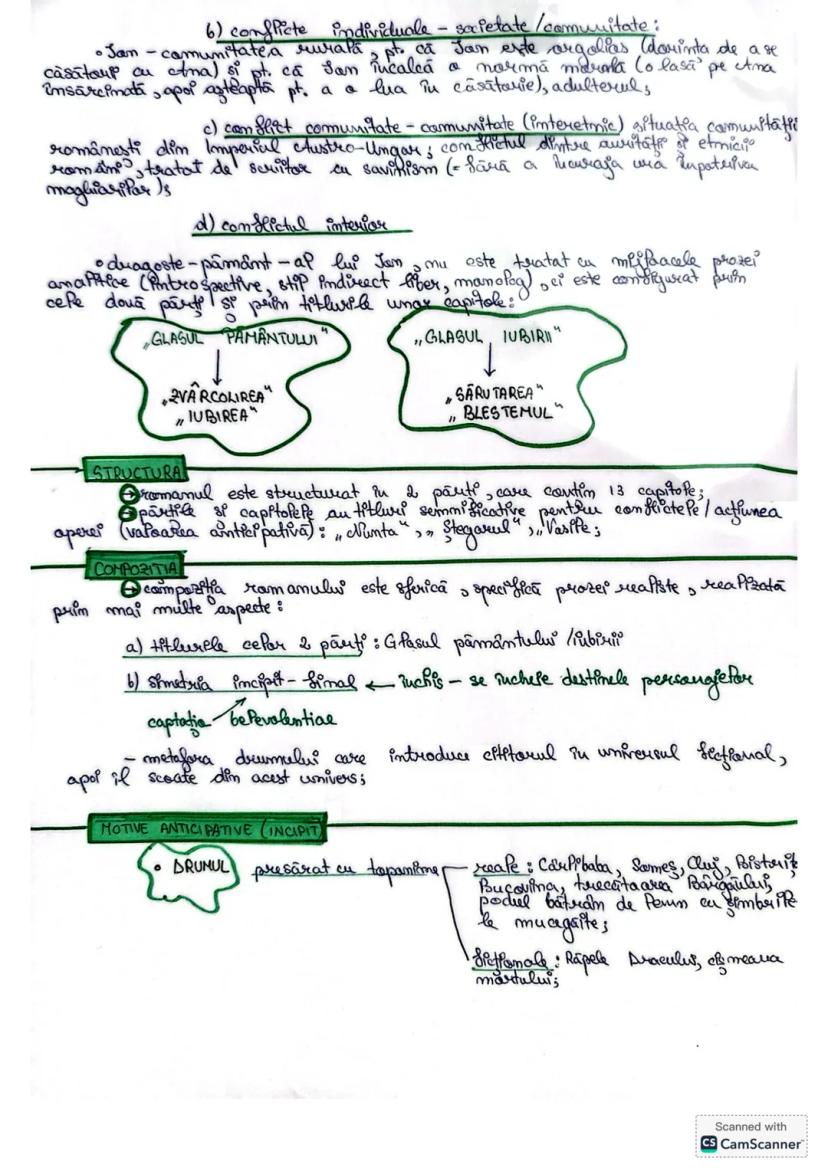 b) conflicte individuale – societate/comunitate:
• Ion – comunitatea rurală, pt. că Ion este orgolios (dorința de a se
căsători cu Ana) și pt. că Ion încalcă o normă morală (o lasă pe Ana
însărcinată, apoi așteaptă pt. a o lua în căsătorie), adulterul;
c) conflict comunitate – comunitate (interetnic) situația comunității
românești din Imperiul Austro-Ungar; conflictul dintre autorități și etnicii
români, tratat de scriitor cu (= fără a încuraja ura împotriva
maghiarilor);
d) conflictul interior
• dragoste – pământ – al lui Ion, nu este tratat cu mijloacele prozei
analitice (introspective, stil indirect liber, monolog), ci este configurat prin
cele două părți și prin titlurile unor capitole:
„GLASUL PĂMÂNTULUI" „GLASUL IUBIRII"
„ZVÂRCOLIREA" „SĂRUTAREA"
„IUBIREA" „BLESTEMUL"
STRUCTURA
romanul este structurat în 2 părți, care conțin 13 capitole;
părțile și capitolele au titluri semnificative pentru conflictele/acțiunea
operei (valoarea anticipativă): „Nunta", „Ștreangul", „Vasile;
COMPOZIȚIA
compoziția romanului este sferică, specifică prozei realiste, realizată
prin mai multe aspecte:
a) titlurile celor 2 părți: Glasul pământului/iubirii
b) simetria incipit – final ← închis – se încheie destinele personajelor
captația benevolentiae
– metafora drumului care introduce cititorul în universul ficțional,
apoi îl scoate din acest univers;
MOTIVE ANTICIPATIVE (INCIPIT)
• DRUMUL presărat cu toponime reale: Cârlibaba, Someș, Cluj, Bistriț
Bucovina, trecătoarea Bârgăului,
podul bătrân de lemn cu șindrile
le mucegăite;
ficționale: Râpele Dracului, cișmeaua
mortului;
Scanned with
CS CamScanner